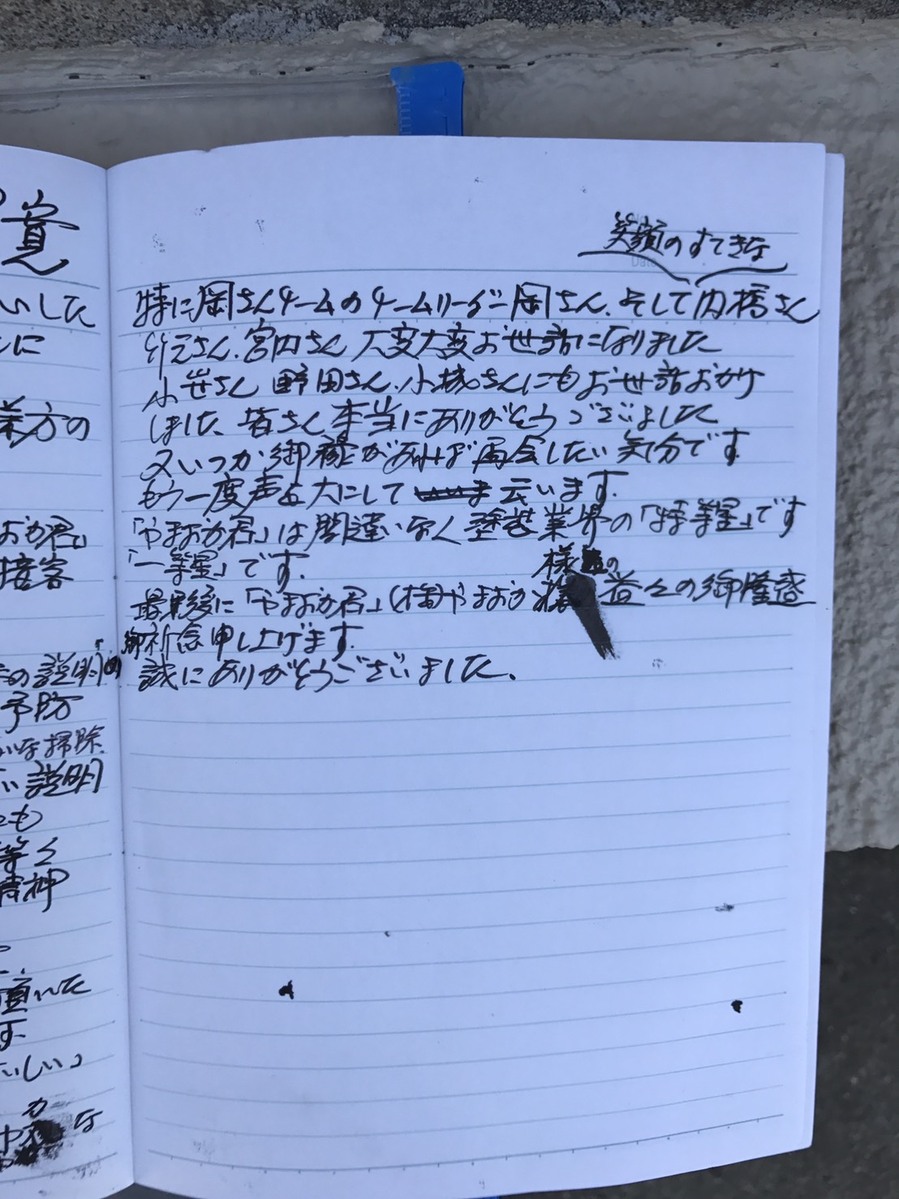 覚
いした
に
業方の
おか君」
接客
の説明の
予防
いな掃除
い説明
とも
等く
精神
頂いた
す
いしい」
カ
や な
笑顔のすてきな
特に岡さんチームのチームリーダー岡さん、そして内橋さん
竹元さん、宮内さん 大変大変お世話になりました
小笹さん 野田さん、小林さんにもお世話おかけ
しました、皆さん本当にありがとうございました
又いつか御縁があれば再会したい気分です
もう一度声を大にして 云います。
「やまおか君」は間違いなく塗装業界の「特等星」です
「一等星」です.
様の
最後に「やまおか君」(株)やまおか 益々の御隆盛
御祈念申し上げます.
誠にありがとうございました.